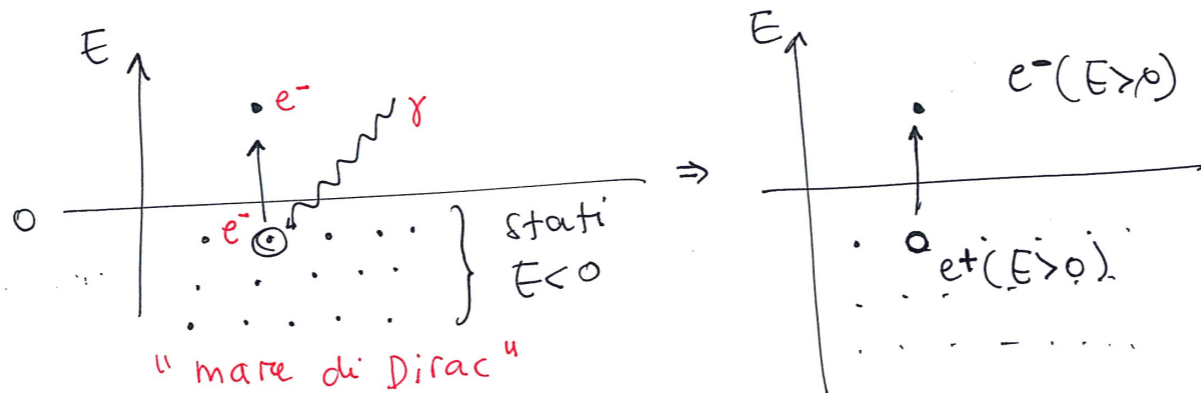 E
e⁻
γ
0
e⁻
stati
E<0
"mare di Dirac"
⇒
E
e⁻(E>0)
e⁺(E>0)